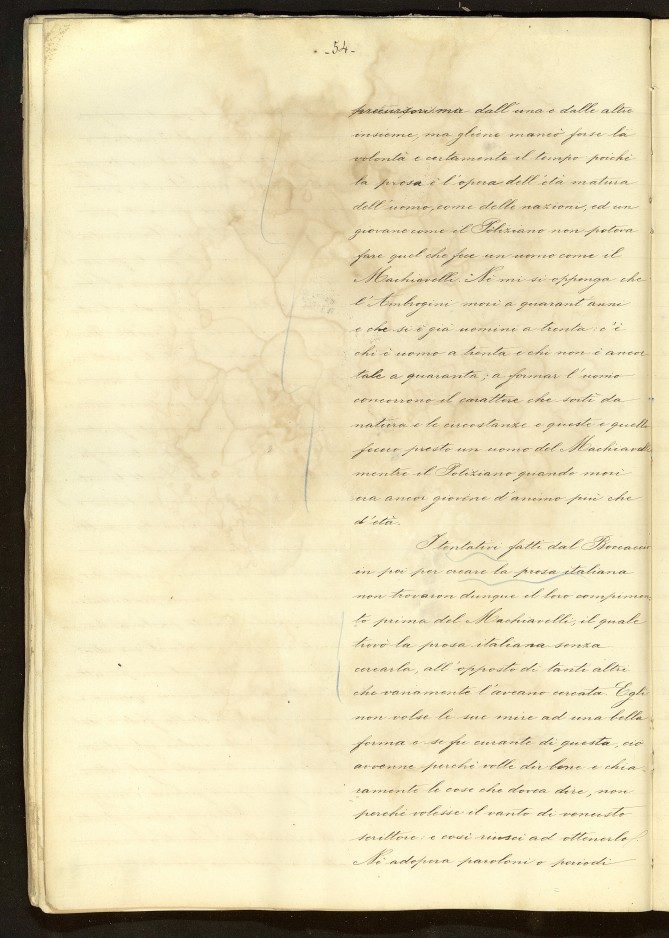 -54-
precursori ma dall'una e dalle altre
insieme, ma gliene mancò forse la
volontà e certamente il tempo poichè
la prosa è l'opera dell'età matura
dell'uomo, come delle nazioni, ed un
giovane come il Poliziano non poteva
fare quel che fece un uomo come il
Machiavelli. Nè mi si opponga che
l'Ambrogini morì a quarant'anni
e che si è già uomini a trenta: c'è
chi è uomo a trenta e chi non è ancor
tale a quaranta; a formar l'uomo
concorrono il carattere che sortì da
natura e le circostanze e queste e quello
fecero presto un uomo del Machiavelli
mentre il Poliziano quando morì
era ancor giovine d'animo più che
d'età.
I tentativi fatti dal Boccaccio
in poi per creare la prosa italiana
non trovaron dunque il loro compimen
to prima del Machiavelli, il quale
trovò la prosa italiana senza
cercarla, all'opposto di tanti altri
che vanamente l'aveano cercata. Egli
non volse le sue mire ad una bella
forma e se fu curante di questa, ciò
avvenne perchè volle dir bene e chia
ramente le cose che dovea dire, non
perchè volesse il vanto di venusto
scrittore: e così riuscì ad ottenerlo!
Nè adopera paroloni o periodi